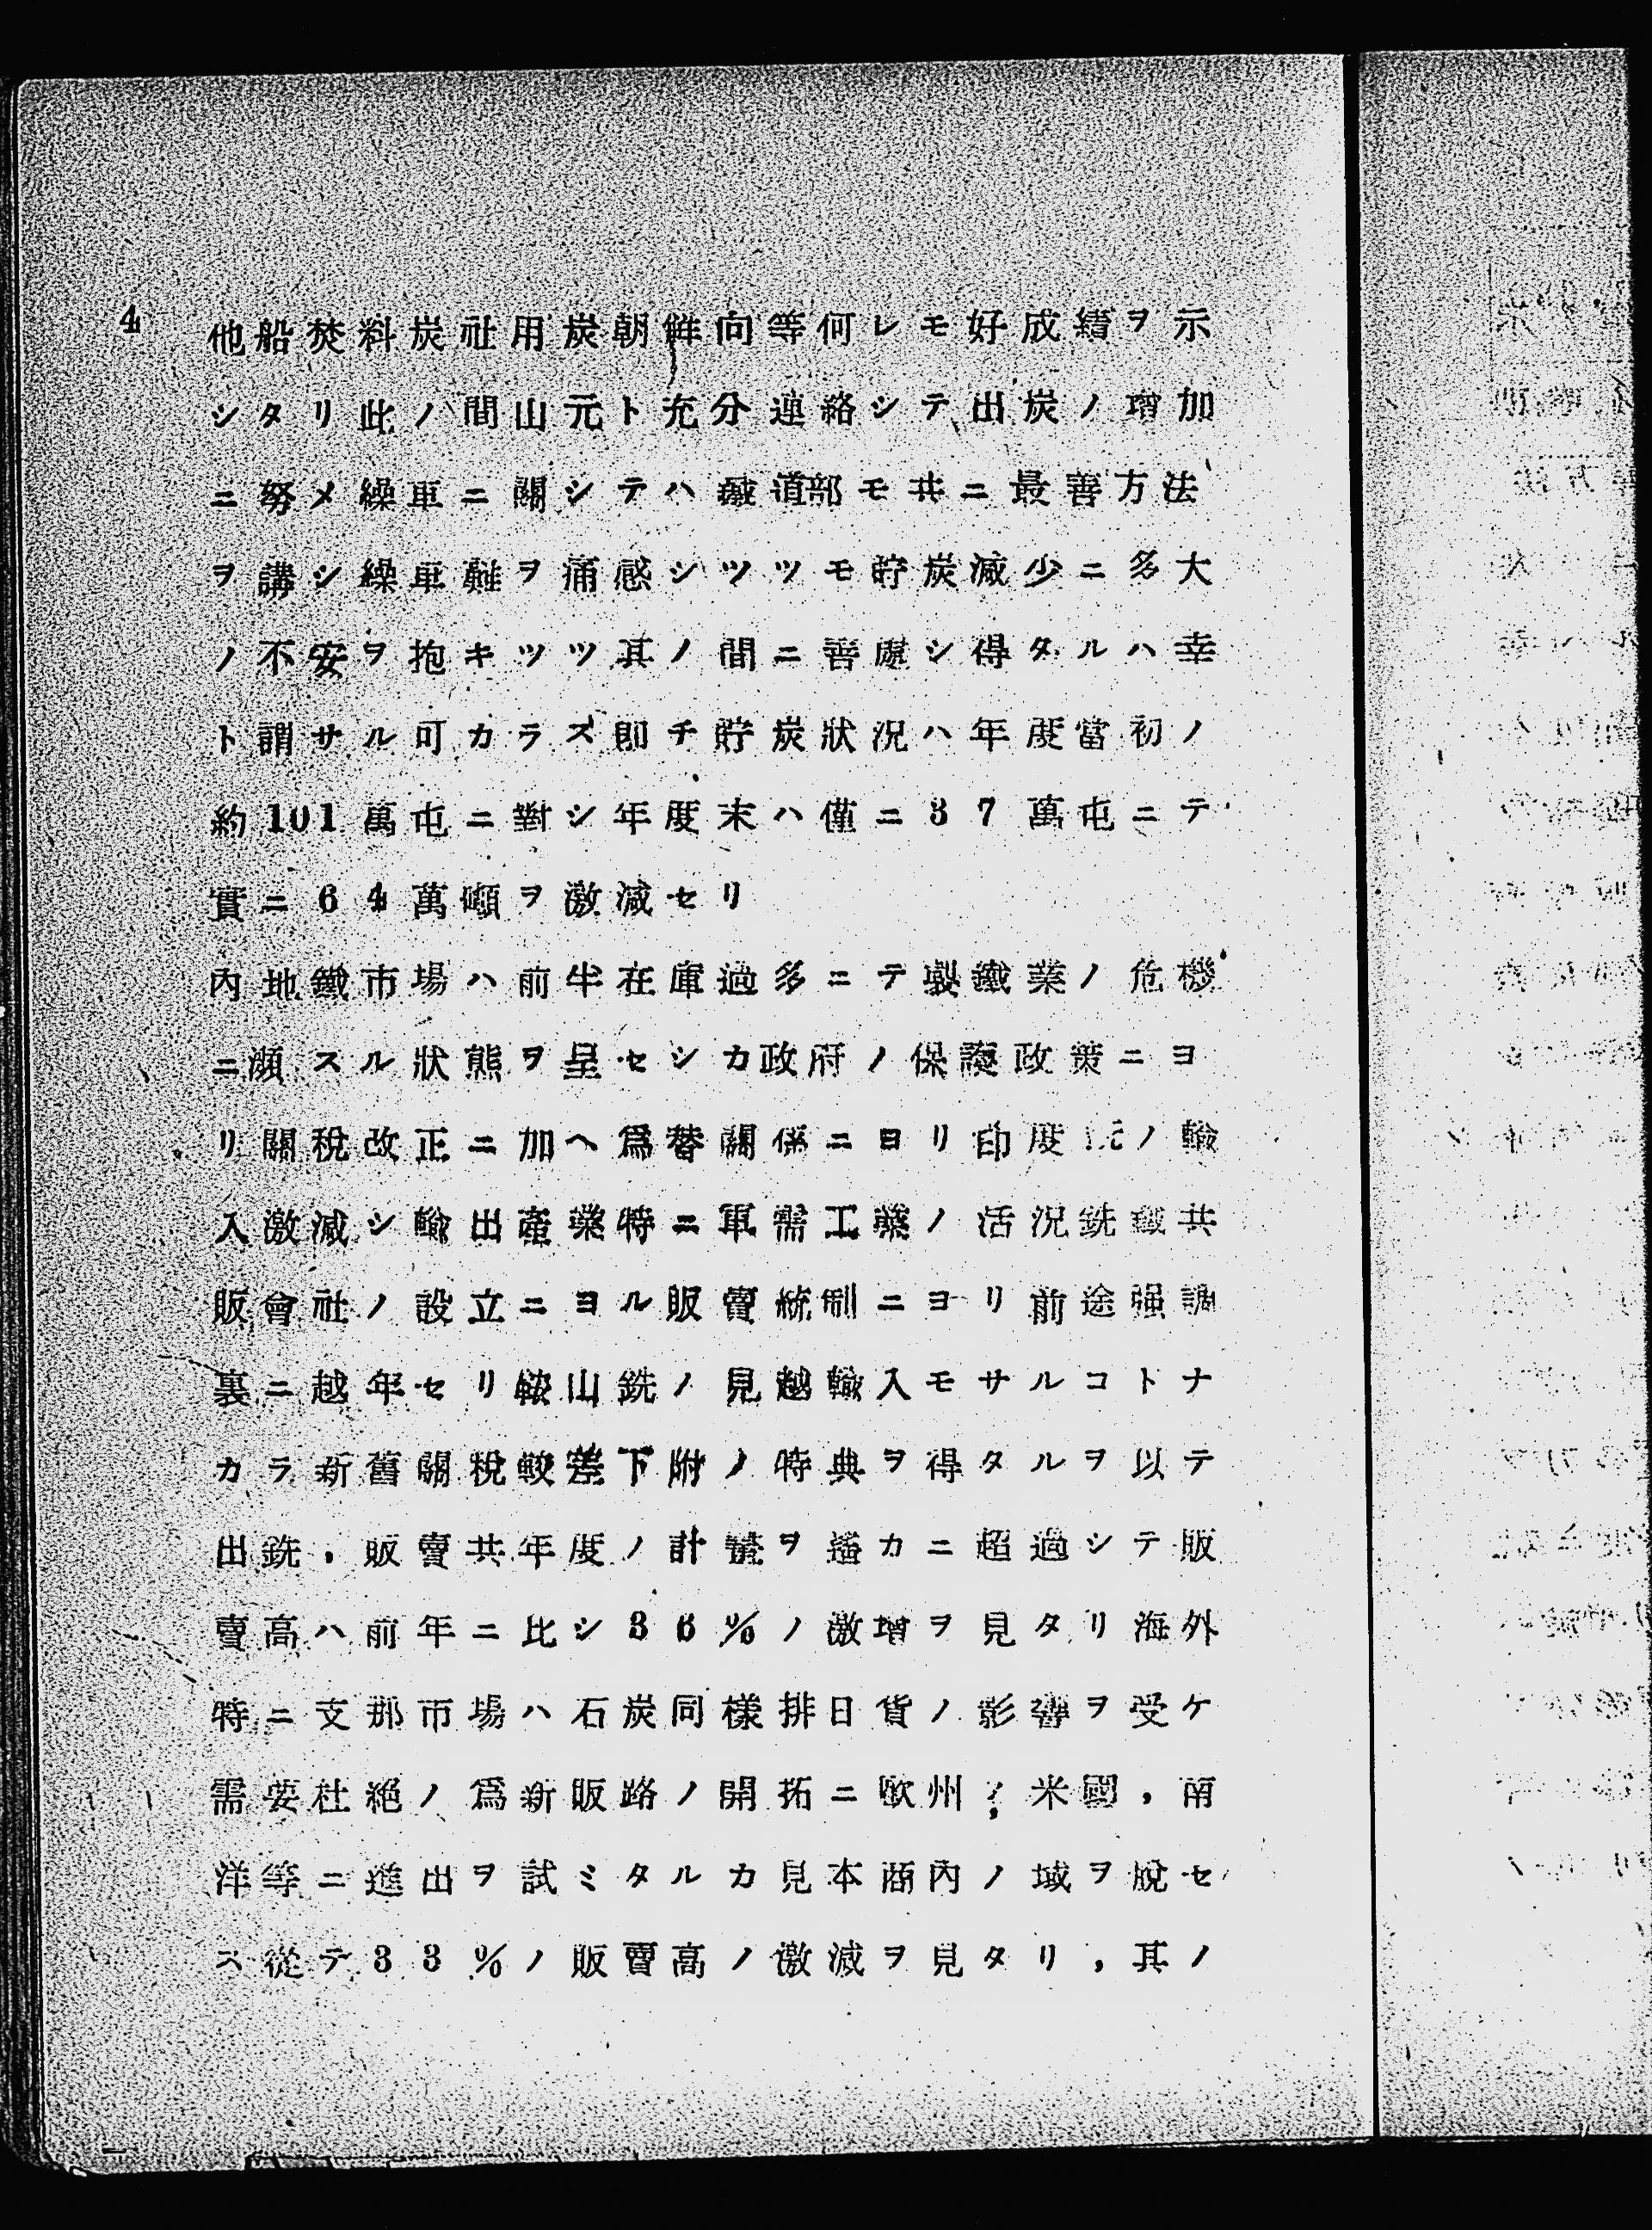 4
他船焚料炭社用炭朝鮮向等何レモ好成績ヲ示
シタリ此ノ間山元ト充分連絡シテ出炭ノ增加
ニ努メ繰車ニ關シテハ鐵道部モ共ニ最善方法
ヲ講シ繰車難ヲ痛感シツツモ貯炭減少ニ多大
ノ不安ヲ抱キツツ其ノ間ニ善處シ得タルハ幸
ト謂サル可カラズ卽チ貯炭狀況ハ年度當初ノ
約101萬屯ニ對シ年度末ハ僅ニ37萬屯ニテ
實ニ64萬噸ヲ激減セリ
內地鐵市場ハ前半在庫過多ニテ製鐵業ノ危機
ニ瀕スル狀態ヲ呈セシカ政府ノ保護政策ニヨ
リ關稅改正ニ加ヘ爲替關係ニヨリ印度銑ノ輸
入激減シ輸出產業特ニ軍需工業ノ活況銑鐵共
販會社ノ設立ニヨル販賣統制ニヨリ前途强調
裏ニ越年セリ鞍山銑ノ見越輸入モサルコトナ
カラ新舊關稅較差下附ノ特典ヲ得タルヲ以テ
出銑，販賣共年度ノ計畫ヲ遙カニ超過シテ販
賣高ハ前年ニ比シ36%ノ激增ヲ見タリ海外
特ニ支那市場ハ石炭同樣排日貨ノ影響ヲ受ケ
需要杜絕ノ爲新販路ノ開拓ニ歐州，米國，南
洋等ニ進出ヲ試ミタルカ見本商內ノ域ヲ脫セ
ス從テ33%ノ販賣高ノ激減ヲ見タリ，其ノ